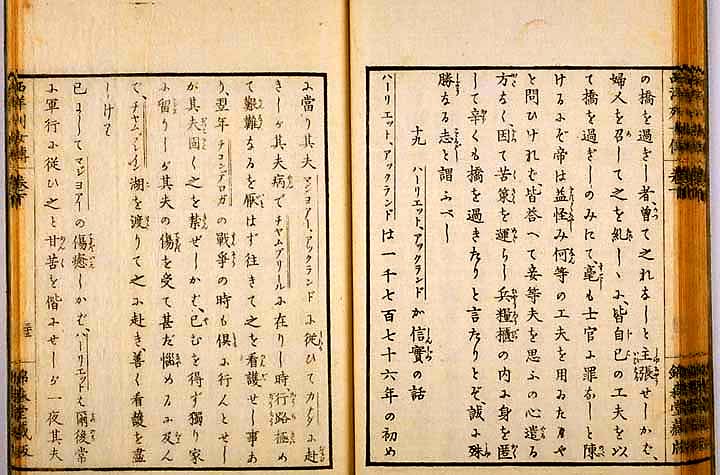 の橋を過ぎし者曽て之れなしと主張せしかば、
婦人を召して之を糺しゝに、皆自己の工夫を以
て橋を過ぎしのみにて、毫も士官に罪なしと陳
けるにぞ帝は益怪み何等の工夫を用ゐたるや
と問ひければ皆答へて妾等夫を思ふの心遣る
方なく、因て苦策を運らし兵糧櫃の内に身を匿
して辛くも橋を過きたりと言たりとぞ、誠に殊
勝なる志と謂ふべし
十九 ハーリエット、アックランドか信實の話
ハーリエット、アックランドは一千七百七十六年の初め
に當り其夫マジョアー、アックランドに從ひてカナダに赴
きしが其夫病てチャムブリールに在りし時行路極め
て艱難なるを厭はず往きて之を看護せし事あ
り、翌年チコンデロガの戰爭の時も倶に行んとせし
が其夫固く之を禁ぜしかば、已むを得ず獨り家
に留りしが其夫の傷を受て甚だ惱めるに及ん
で、チャムプレイン湖を渡りて之に赴き、善く看護を盡
しけり
已にしてマジョアーの傷癒しかば、ハーリエットも爾後常
に軍行に從ひ之と甘苦を偕にせしが一夜其夫
西洋列女傳 巻下